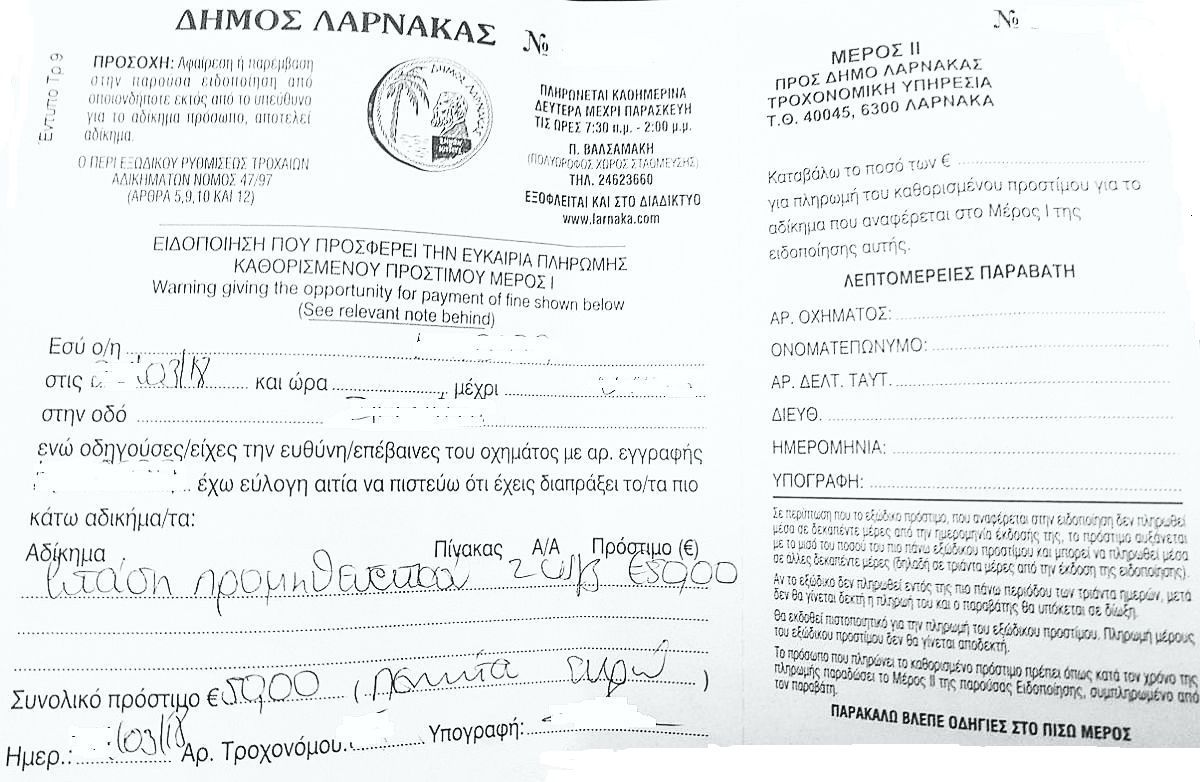 ΔΗΜΟΣ ΛΑΡΝΑΚΑΣ №
Έντυπο Τρ 9
ΠΡΟΣΟΧΗ: Αφαίρεση ή παρέμβαση
στην παρούσα ειδοποίηση από
οποιονδήποτε εκτός από το υπεύθυνο
για το αδίκημα πρόσωπο, αποτελεί
αδίκημα.
Ο ΠΕΡΙ ΕΞΩΔΙΚΟΥ ΡΥΘΜΙΣΕΩΣ ΤΡΟΧΑΙΩΝ
ΑΔΙΚΗΜΑΤΩΝ ΝΟΜΟΣ 47/97
(ΑΡΘΡΑ 5,9,10 ΚΑΙ 12)
ΔΗΜΟΣ ΛΑΡΝΑΚΟΣ
ΠΛΗΡΩΝΕΤΑΙ ΚΑΘΗΜΕΡΙΝΑ
ΔΕΥΤΕΡΑ ΜΕΧΡΙ ΠΑΡΑΣΚΕΥΗ
ΤΙΣ ΩΡΕΣ 7:30 π.μ. - 2:00 μ.μ.
Π. ΒΑΛΣΑΜΑΚΗ
(ΠΟΛΥΟΡΟΦΟΣ ΧΩΡΟΣ ΣΤΑΘΜΕΥΣΗΣ)
ΤΗΛ. 24623660
ΕΞΟΦΛΕΙΤΑΙ ΚΑΙ ΣΤΟ ΔΙΑΔΙΚΤΥΟ
www.larnaka.com
ΕΙΔΟΠΟΙΗΣΗ ΠΟΥ ΠΡΟΣΦΕΡΕΙ ΤΗΝ ΕΥΚΑΙΡΙΑ ΠΛΗΡΩΜΗΣ
ΚΑΘΟΡΙΣΜΕΝΟΥ ΠΡΟΣΤΙΜΟΥ ΜΕΡΟΣ Ι
Warning giving the opportunity for payment of fine shown below
(See relevant note behind)
Εσύ ο/η
στις /03/18 και ώρα μέχρι
στην οδό
ενώ οδηγούσες/είχες την ευθύνη/επέβαινες του οχημάτος με αρ. εγγραφής
έχω εύλογη αιτία να πιστεύω ότι έχεις διαπράξει το/τα πιο
κάτω αδικήμα/τα:
Αδίκημα Πίνακας Α/Α Πρόστιμο (€)
€50,00
Συνολικό πρόστιμο € 50,00 (πενήντα ευρώ)
Ημερ.: /03/18 Αρ. Τροχονόμου. Υπογραφή:
№
ΜΕΡΟΣ ΙΙ
ΠΡΟΣ ΔΗΜΟ ΛΑΡΝΑΚΑΣ
ΤΡΟΧΟΝΟΜΙΚΗ ΥΠΗΡΕΣΙΑ
Τ.Θ. 40045, 6300 ΛΑΡΝΑΚΑ
Καταβάλω το ποσό των €
για πληρωμή του καθορισμένου προστίμου για το
αδίκημα που αναφέρεται στο Μέρος Ι της
ειδοποίησης αυτής.
ΛΕΠΤΟΜΕΡΕΙΕΣ ΠΑΡΑΒΑΤΗ
ΑΡ. ΟΧΗΜΑΤΟΣ:
ΟΝΟΜΑΤΕΠΩΝΥΜΟ:
ΑΡ. ΔΕΛΤ. ΤΑΥΤ.
ΔΙΕΥΘ.
ΗΜΕΡΟΜΗΝΙΑ:
ΥΠΟΓΡΑΦΗ:
Σε περίπτωση που το εξώδικο πρόστιμο, που αναφέρεται στην ειδοποίηση δεν πληρωθεί
μέσα σε δεκαπέντε μέρες από την ημερομηνία έκδοσης της, το πρόστιμο αυξάνεται
με το μισό του ποσού του πιο πάνω εξώδικου προστίμου και μπορεί να πληρωθεί μέσα
σε άλλες δεκαπέντε μέρες (δηλαδή σε τριάντα μέρες από την έκδοση της ειδοποίησης).
Αν το εξώδικο δεν πληρωθεί εντός της πιο πάνω περιόδου των τριάντα ημερών, μετά
δεν θα γίνεται δεκτή η πληρωμή του και ο παραβάτης θα υπόκειται σε δίωξη.
Θα εκδοθεί πιστοποιητικό για την πληρωμή του εξώδικου προστίμου. Πληρωμή μέρους
του εξώδικου προστίμου δεν θα γίνεται αποδεκτή.
Το πρόσωπο που πληρώνει το καθορισμένο πρόστιμο πρέπει όπως κατά τον χρόνο της
πληρωμής παραδώσει το Μέρος ΙΙ της παρούσας Ειδοποίησης, συμπληρωμένο από
τον παραβάτη.
ΠΑΡΑΚΑΛΩ ΒΛΕΠΕ ΟΔΗΓΙΕΣ ΣΤΟ ΠΙΣΩ ΜΕΡΟΣ